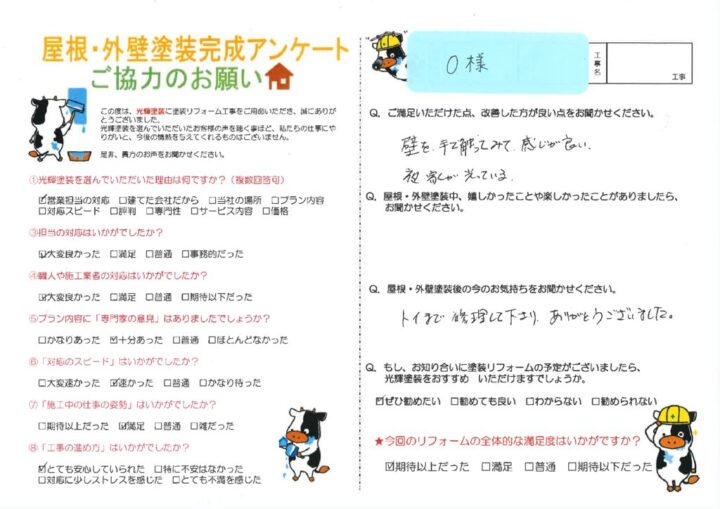 屋根・外壁塗装完成アンケート
ご協力のお願い
この度は、光輝塗装に塗装リフォーム工事をご用命いただき、誠にありが
とうございました。
光輝塗装を選んでいただいたお客様の声を聴く事ほど、私たちの仕事にや
りがいと、今後の情熱を与えてくれるものはございません。
是非、貴方のお声をお聞かせください。
①光輝塗装を選んでいただいた理由は何ですか？（複数回答可）
☑営業担当の対応 □建てた会社だから □当社の場所 □プラン内容
□対応スピード □評判 □専門性 □サービス内容 □価格
③担当の対応はいかがでしたか？
☑大変良かった □満足 □普通 □事務的だった
④職人や施工業者の対応はいかがでしたか？
☑大変良かった □満足 □普通 □期待以下だった
⑤プラン内容に「専門家の意見」はありましたでしょうか？
□かなりあった ☑十分あった □普通 □ほとんどなかった
⑥「対応のスピード」はいかがでしたか？
□大変速かった ☑速かった □普通 □かなり待った
⑦「施工中の仕事の姿勢」はいかがでしたか？
□期待以上だった ☑満足 □普通 □雑だった
⑧「工事の進め方」はいかがでしたか？
☑とても安心していられた □特に不安はなかった
□対応に少しストレスを感じた □とても不満を感じた
O様
工事名
工事
Q．ご満足いただけた点、改善した方が良い点をお聞かせください。
壁を手で触ってみて感じが良い、
夜家が光っている。
Q．屋根・外壁塗装中、嬉しかったことや楽しかったことがありましたら、
お聞かせください。
Q．屋根・外壁塗装後の今のお気持ちをお聞かせください。
トイまで修理して下さり、ありがとうございました。
Q．もし、お知り合いに塗装リフォームの予定がございましたら、
光輝塗装をおすすめ いただけますでしょうか。
☑ぜひ勧めたい □勧めても良い □わからない □勧められない
★今回のリフォームの全体的な満足度はいかがですか？
☑期待以上だった □満足 □普通 □期待以下だった